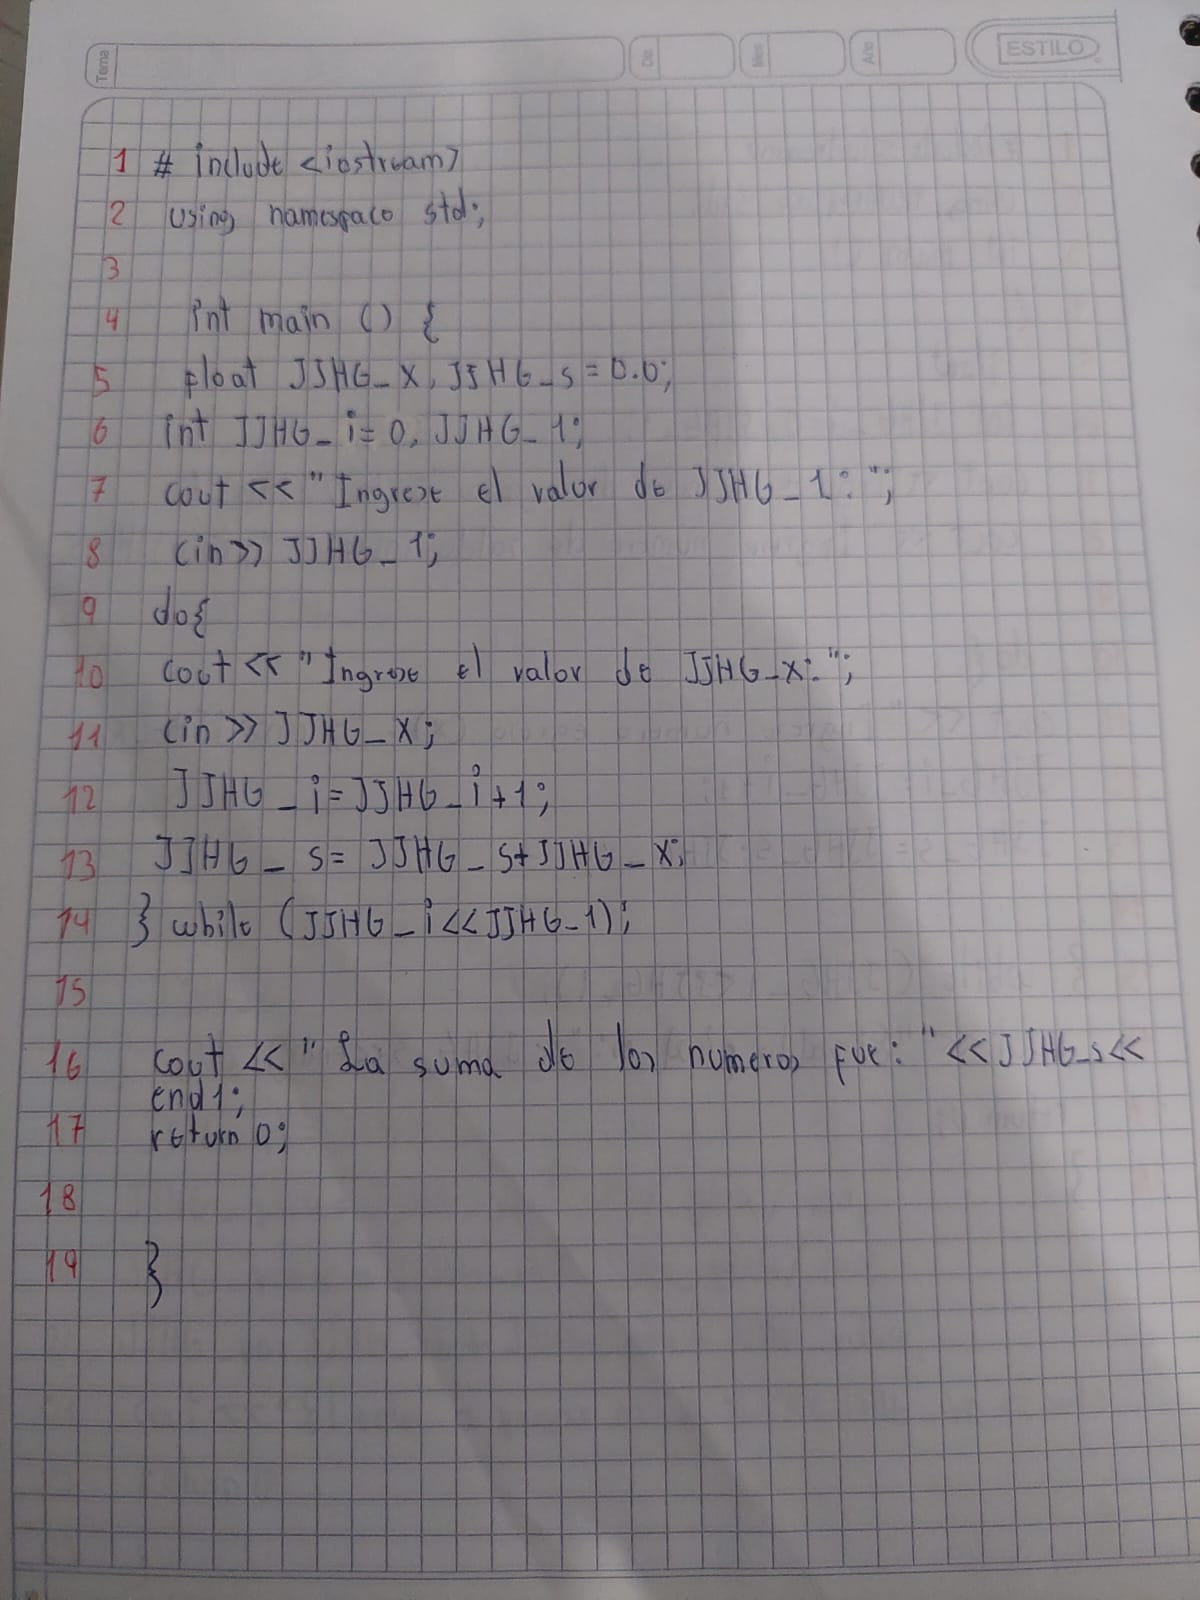 Tema
Dia
Mes
Año
ESTILO
1 # include <iostream>
2 using namespace std;
3
4 int main () {
5 float JJHG_X, JJHG_s = 0.0;
6 int JJHG_i= 0, JJHG_1;
7 cout << "Ingrese el valor de JJHG_1: ";
8 cin>> JJHG_1;
9 do{
10 cout << "Ingrese el valor de JJHG_X: ";
11 cin >> JJHG_X;
12 JJHG_i=JJHG_i+1;
13 JJHG_s= JJHG_s+JJHG_X;
14 } while (JJHG_i<<JJHG_1);
15
16 cout << " La suma de los numeros fue: "<<JJHG_s<<
end1;
17 return 0;
18
19 }